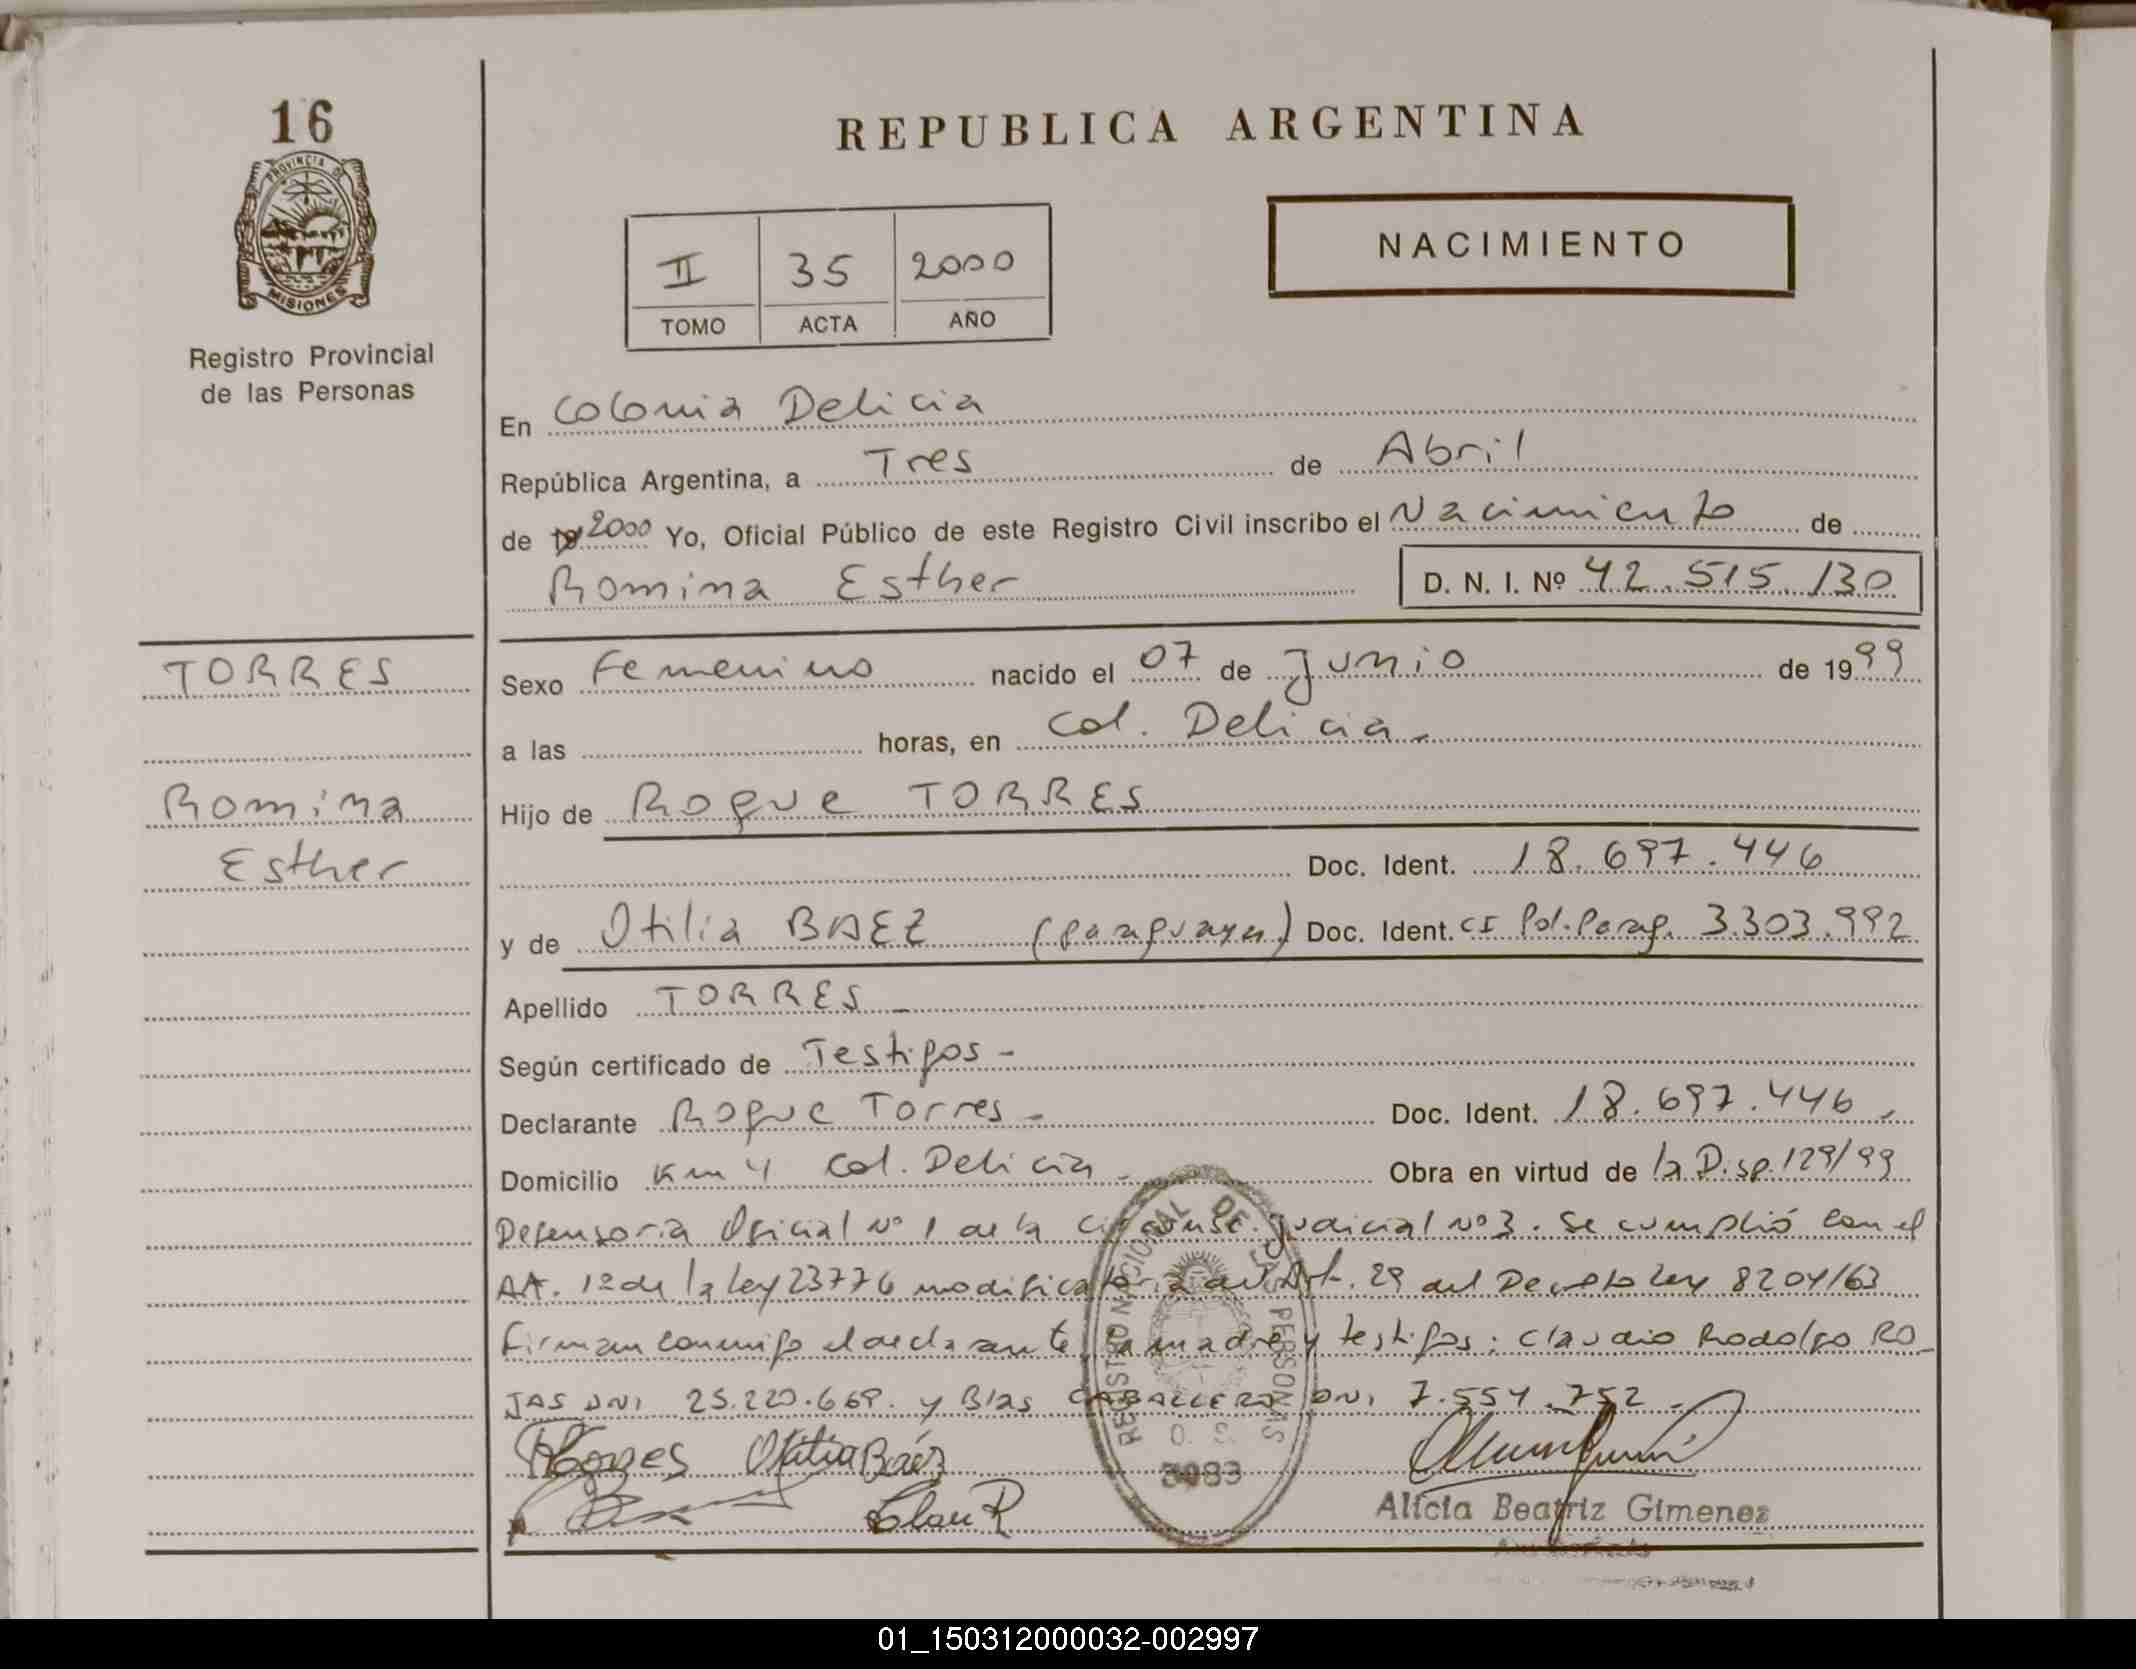 16
PROVINCIA DE
MISIONES
Registro Provincial
de las Personas
REPUBLICA ARGENTINA
NACIMIENTO
II 35 2000
TOMO ACTA AÑO
En Colonia Delicia
República Argentina, a Tres de Abril
de 19 2000 Yo, Oficial Público de este Registro Civil inscribo el Nacimiento de
Romina Esther D. N. I. Nº 42.515.130
TORRES
Romina
Esther
Sexo Femenino nacido el 07 de Junio de 1999
a las horas, en Col. Delicia.-
Hijo de Roque TORRES
Doc. Ident. 18.697.446
y de Otilia BAEZ (paraguaya) Doc. Ident. CI Pol. Parag. 3.303.992
Apellido TORRES -
Según certificado de Testigos -
Declarante Roque Torres - Doc. Ident. 18.697.446.-
Domicilio Km 4 Col. Delicia - Obra en virtud de la Disp. 129/99
Defensoria Oficial Nº 1 de la Circunsc. Judicial Nº 3. Se cumplió con el
Art. 1º de la Ley 23776 modificatoria del Art. 29 del Decreto Ley 8204/63
Firman conmigo el declarante, la madre y testigos: Claudio Rodolfo RO-
JAS DNI 25.220.669. y Blas CABALLERO DNI 7.554.752.-
RTorres Otilia Báez
Clau R
REGISTRO NACIONAL DE LAS PERSONAS
O. S.
3083
Alicia Beatriz Gimenez
01_150312000032-002997